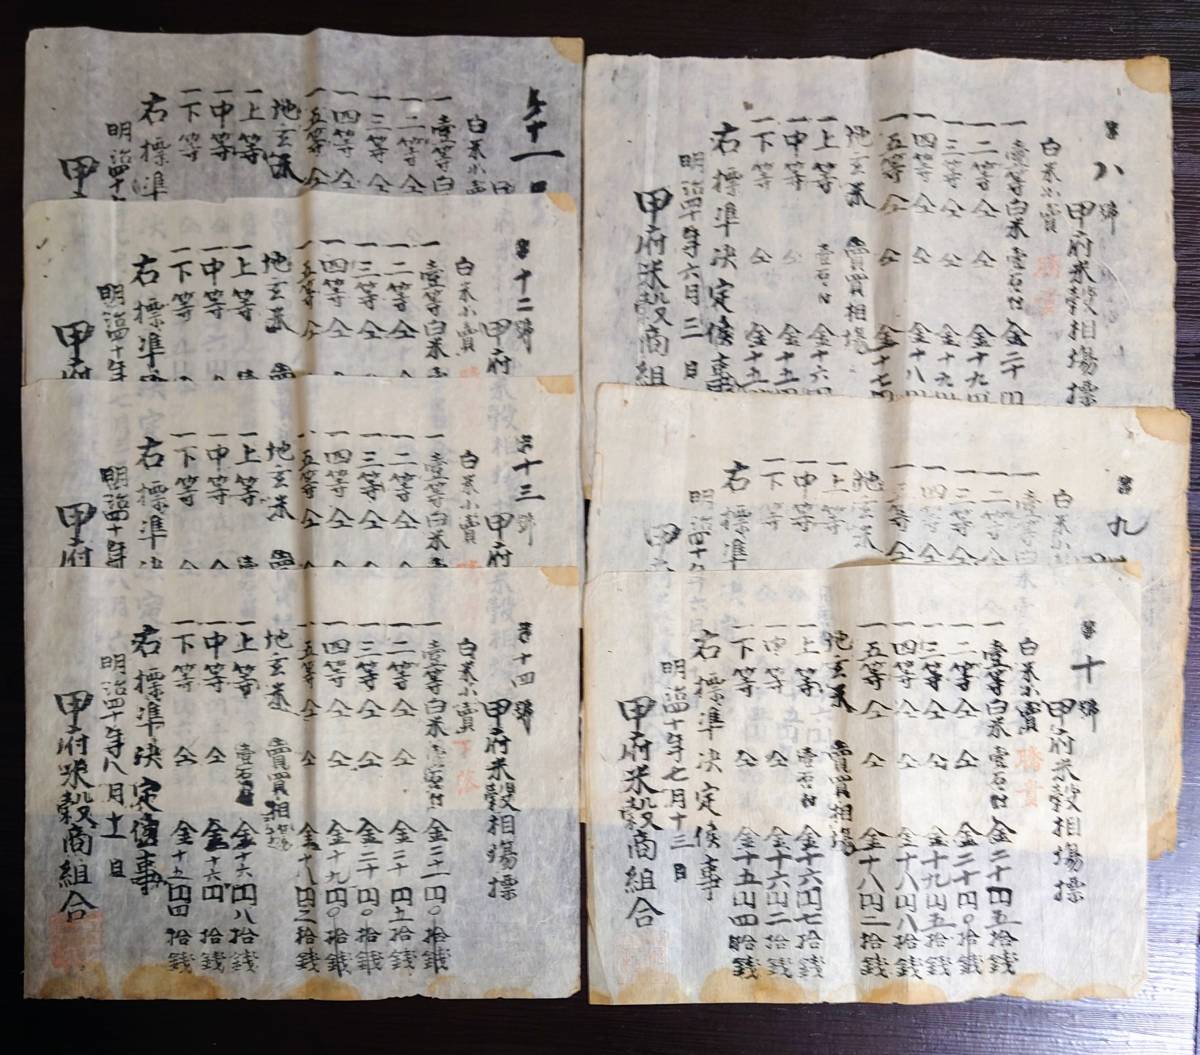 第八號
甲府米穀相場標
白米小賣
騰貴
一壹等白米壹石付金二十円
一二等仝仝金十九円
一三等仝仝金十九
一四等仝金十八
一五等仝仝金十七円
地玄米賣買相場
一上等壹石付金十六円
一中等仝金十五
一下等仝金十五
右標準決定候事
明治四十年六月三日
甲府米穀商組
第九
白米小
一壹等白米
一二等仝
一三等仝
一四等仝
一五等仝
地玄米
一上等
一中等
一下等
右標準
明治四十年六月
甲府
第十號
甲府米穀相場標
白米小賣
騰貴
一壹等白米壹石付金二十円五拾錢
一二等仝仝金二十円〇拾錢
一三等仝仝金十九円五拾錢
一四等仝仝金十八円八拾錢
一五等仝仝金十八円二拾錢
地玄米賣買相場
一上等壹石付金十六円七拾錢
一中等仝仝金十六円二拾錢
一下等仝仝金十五円四拾錢
右標準決定候事
明治四十年七月十三日
甲府米穀商組合
十一
白米小賣
一壹等白
一二等仝
一三等仝
一四等仝
一五等仝
地玄米
一上等
一中等
一下等
右標準
明治四十
甲
第十二號
甲府
白米小賣
一壹等白米
一二等仝
一三等仝
一四等仝
一五等仝
地玄米
一上等
一中等
一下等
右標準決定
明治四十年七月
甲府
第十三號
甲府米穀相
白米小賣
一壹等白米
一二等仝仝
一三等仝仝
一四等仝仝
一五等仝仝
地玄米賣
一上等壹
一中等仝
一下等仝
右標準決
明治四十年八月
甲府
第十四號
甲府米穀相場標
白米小賣
下落
一壹等白米壹石付金二十一円〇拾錢
一二等仝仝金二十円五拾錢
一三等仝仝金二十円〇拾錢
一四等仝仝金十九円〇拾錢
一五等仝仝金十八円二拾錢
地玄米賣買相場
一上等壹石付金十六円八拾錢
一中等仝仝金十六円拾錢
一下等仝仝金十五円四拾錢
右標準決定候事
明治四十年八月十一日
甲府米穀商組合